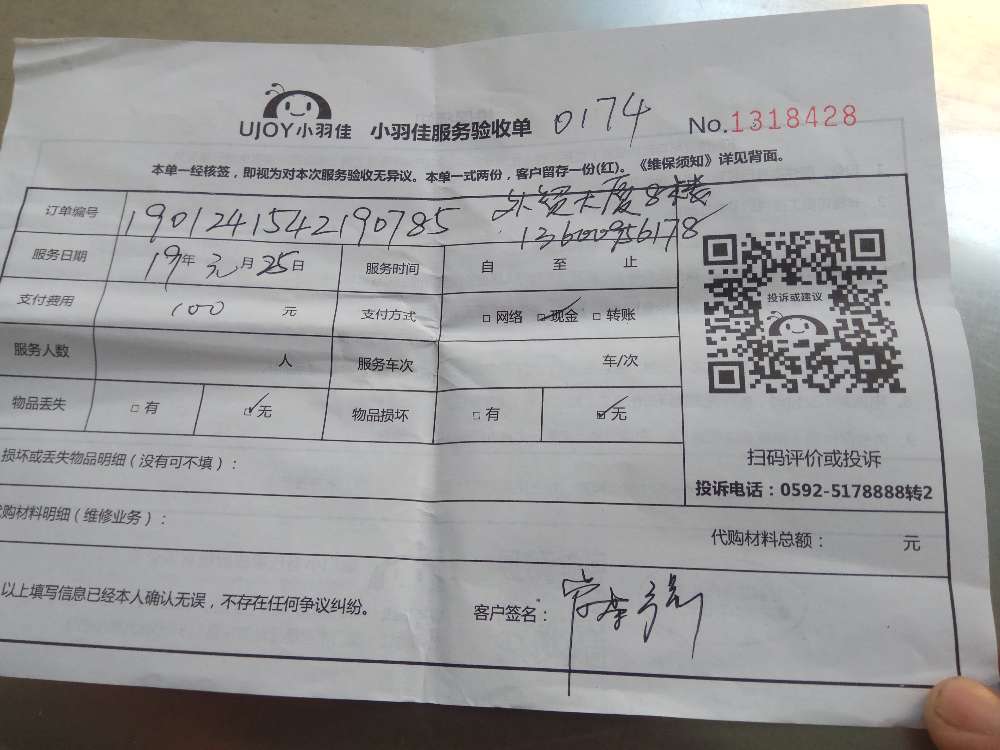 UJOY小羽佳 小羽佳服务验收单 0174 No.1318428
本单一经核签，即视为对本次服务验收无异议。本单一式两份，客户留存一份(红)。《维保须知》详见背面。
订单编号 190124154219​0785 外贸大厦8楼
13600956178
服务日期 19年元月25日 服务时间 自 至 止
支付费用 100 元 支付方式 □网络 ☑现金 □转账
投诉或建议
服务人数 人 服务车次 车/次
物品丢失 □有 ☑无 物品损坏 □有 ☑无
扫码评价或投诉
损坏或丢失物品明细（没有可不填）：
投诉电话：0592-5178888转2
代购材料明细（维修业务）：
代购材料总额： 元
以上填写信息已经本人确认无误，不存在任何争议纠纷。 客户签名：